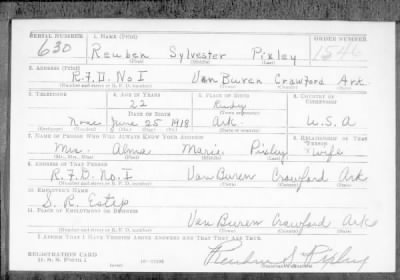 SERIAL NUMBER 1. NAME (Print) ORDER NUMBER
630 Reuben Sylvester Pixley 1546
(First) (Middle) (Last)
2. ADDRESS (Print)
R.F.D. No I Van Buren Crawford Ark.
(Number and street or R. F. D. number) (Town) (County) (State)
3. TELEPHONE 4. AGE IN YEARS 5. PLACE OF BIRTH 6. COUNTRY OF CITIZENSHIP
22 Rudy
DATE OF BIRTH (Town or county)
None June 25 1918 Ark. U.S.A
(Exchange) (Number) (Mo.) (Day) (Yr.) (State or country)
7. NAME OF PERSON WHO WILL ALWAYS KNOW YOUR ADDRESS 8. RELATIONSHIP OF THAT PERSON
Mrs. Alma Marie Pixley wife
(Mr., Mrs., Miss) (First) (Middle) (Last)
9. ADDRESS OF THAT PERSON
R.F.D. No. I Van Buren Crawford Ark
(Number and street or R. F. D. number) (Town) (County) (State)
10. EMPLOYER'S NAME
S. R. Estep
11. PLACE OF EMPLOYMENT OR BUSINESS
Van Buren Crawford Ark
(Number and street or R. F. D. number) (Town) (County) (State)
I AFFIRM THAT I HAVE VERIFIED ABOVE ANSWERS AND THAT THEY ARE TRUE.
REGISTRATION CARD
D. S. S. Form 1 Reuben S. Pixley
(Registrant's signature)